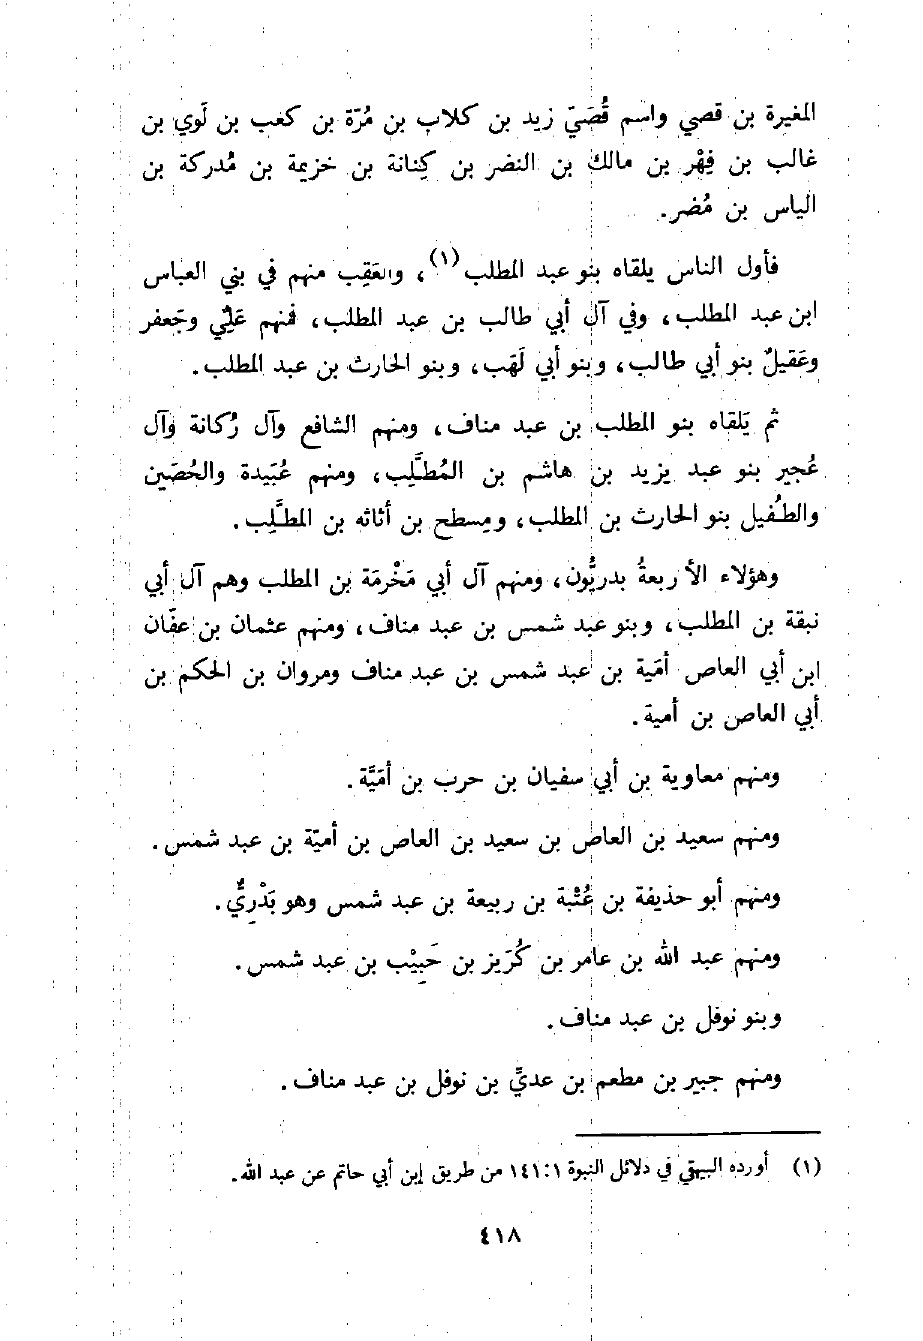 المغيرة بن قصي واسم قُصَيّ زيد بن كلاب بن مُرّة بن كعب بن لَوي بن
غالب بن فِهْر بن مالك بن النضر بن كِنانة بن خزيمة بن مُدركة بن
الياس بن مُضر.
فأول الناس يلقاه بنو عبد المطلب (١)، والعَقِب منهم في بني العباس
ابن عبد المطلب، وفي آل أبي طالب بن عبد المطلب، فمنهم عَلِيّ وجَعفر
وعَقيلٌ بنو أبي طالب، وبنو أبي لَهَب، وبنو الحارث بن عبد المطلب.
ثم يَلقاه بنو المطلب بن عبد مناف، ومنهم الشافع وآل رُكانة وآل
عُجير بنو عبد يزيد بن هاشم بن المُطَّلِب، ومنهم عُبَيدة والحُصَين
والطُفيل بنو الحارث بن المطلب، ومِسطح بن أثاثه بن المطَّلِب.
وهؤلاء الأربعةُ بدريُّون، ومنهم آل أبي مَخْرمَة بن المطلب وهم آل أبي
نبقة بن المطلب، وبنو عبد شمس بن عبد مناف، ومنهم عثمان بن عفّان
ابن أبي العاص أمَية بن عبد شمس بن عبد مناف ومروان بن الحكم بن
أبي العاص بن أمية.
ومنهم معاوية بن أبي سفيان بن حرب بن أمَيَّة.
ومنهم سعيد بن العاص بن سعيد بن العاص بن أميّة بن عبد شمس.
ومنهم أبو حذيفة بن عُتْبة بن ربيعة بن عبد شمس وهو بَدْرِيٌّ.
ومنهم عبد الله بن عامر بن كُرَيز بن حَبِيْب بن عبد شمس.
وبنو نوفل بن عبد مناف.
ومنهم جبير بن مطعم بن عديّ بن نوفل بن عبد مناف.
(١) أورده البيهقي في دلائل النبوة ١٤١:١ من طريق إبن أبي حاتم عن عبد الله.
٤١٨